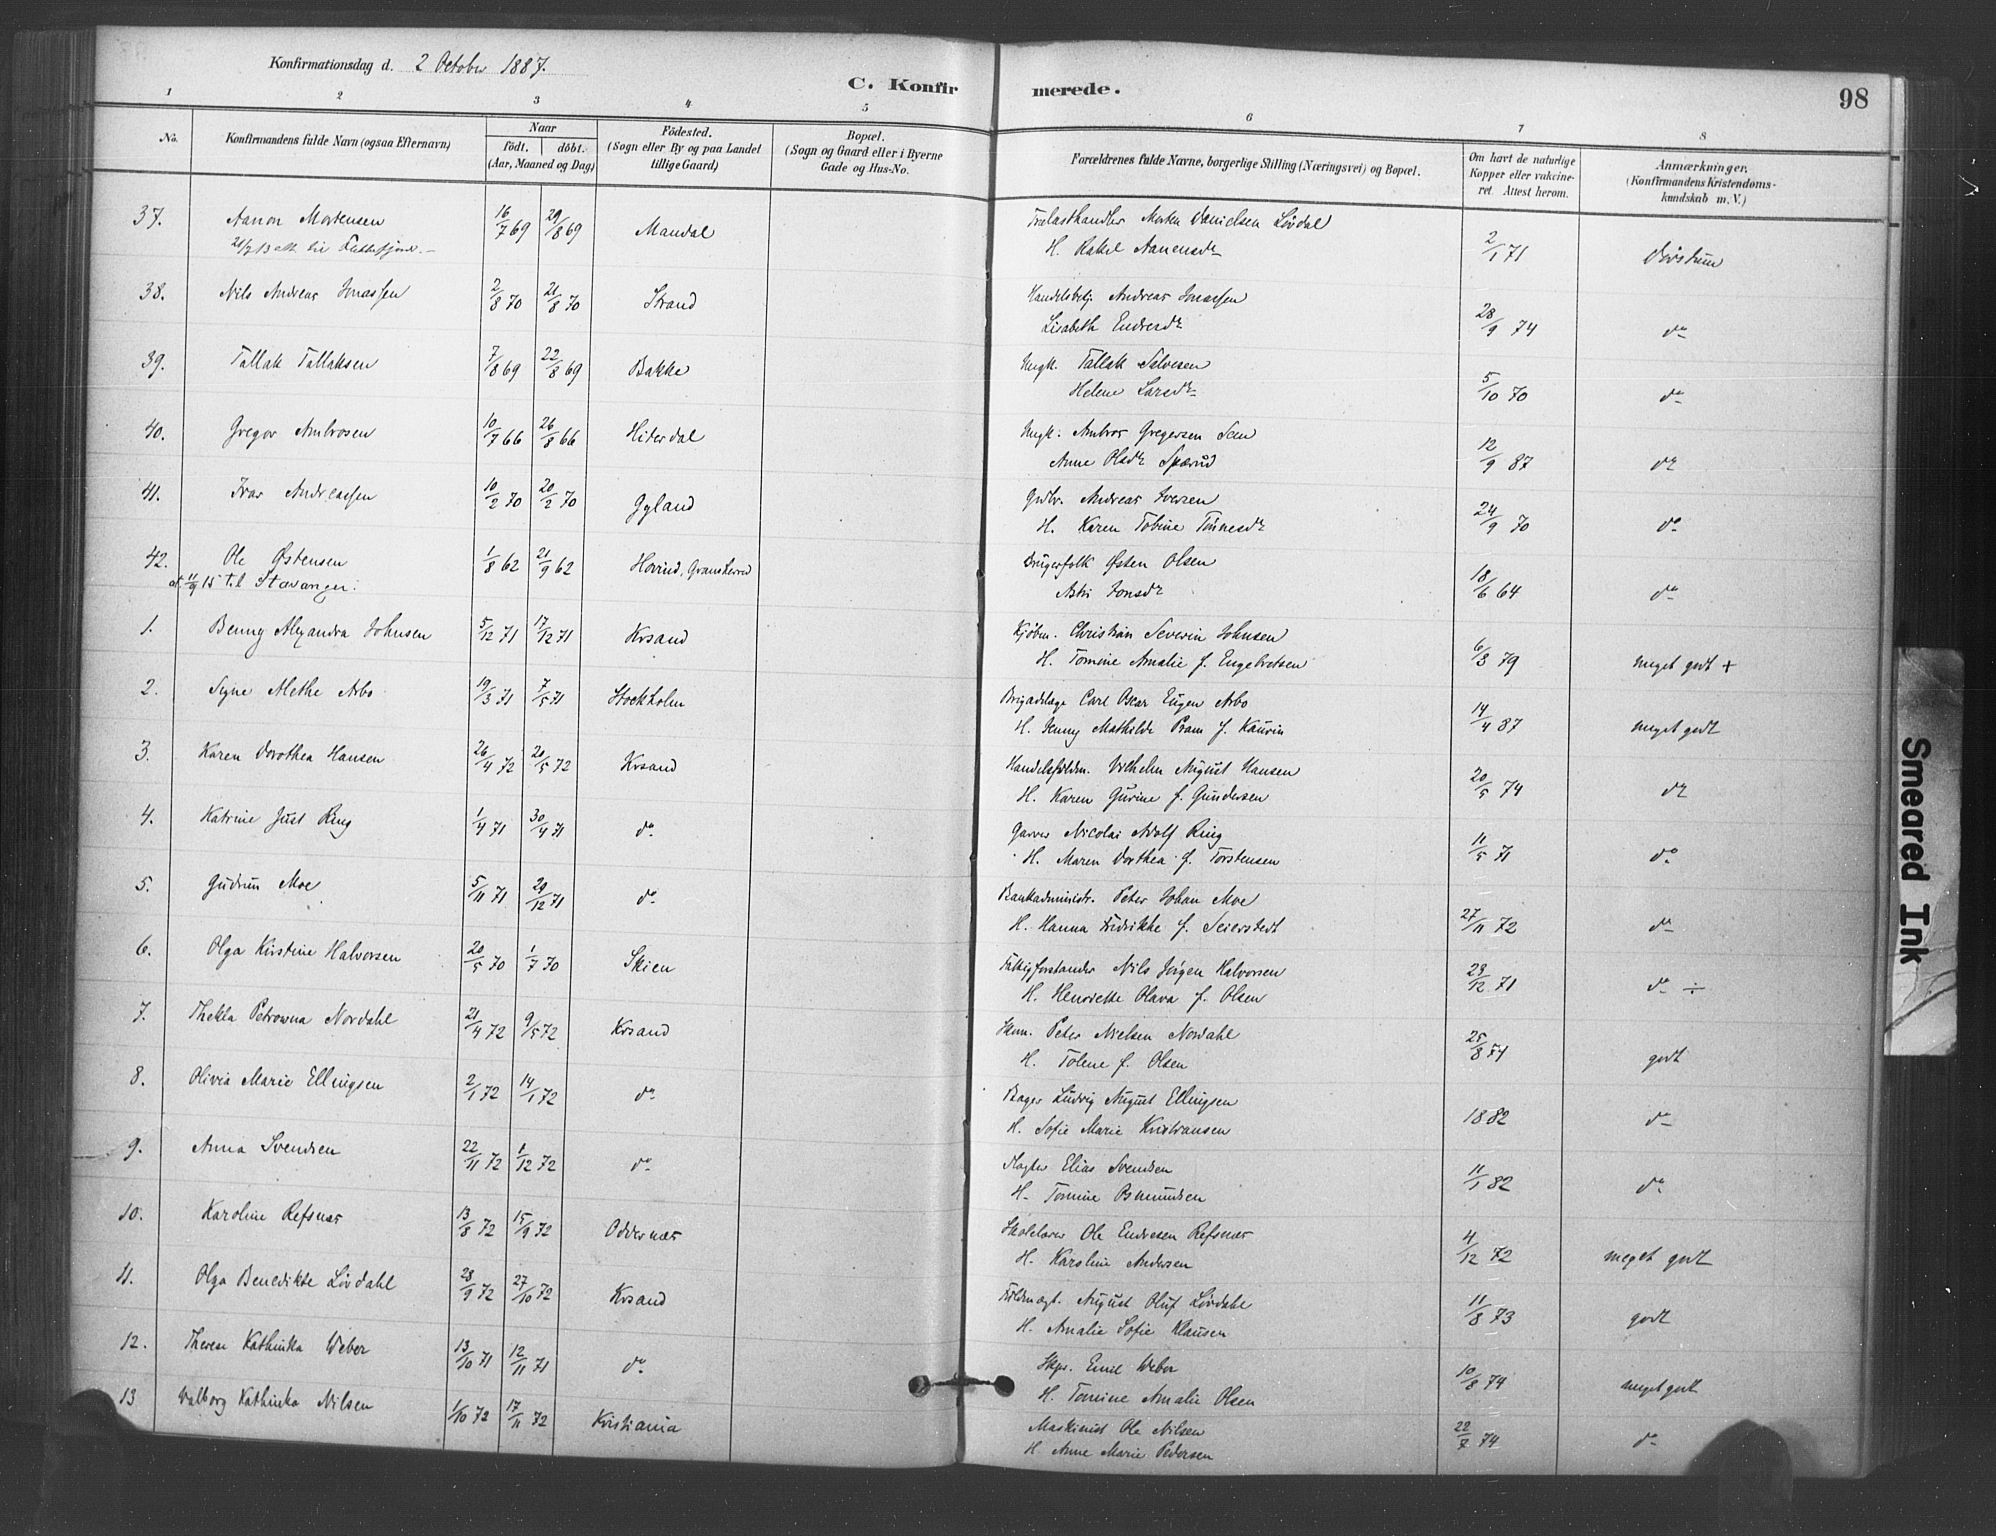 Konfirmationsdag d. 2 October 1887.
C. Konfirmerede.
98
1 2 3 4 5 6 7 8
No.
Konfirmandens fulde Navn (ogsaa Efternavn)
Naar
födt. döbt.
(Aar, Maaned og Dag)
Födested.
(Sogn eller By og paa Landet
tillige Gaard)
Bopæl.
(Sogn og Gaard eller i Byerne
Gade og Hus-No.
Forældrenes fulde Navne, borgerlige Stilling (Næringsvei) og Bopæl.
Om havt de naturlige
Kopper eller vakcine-
ret. Attest herom.
Anmærkninger.
(Konfirmandens Kristendoms-
kundskab m. V.)
37. Aanon Mortensen 16/7 69 29/8 69 Mandal Trælasthandler Morten Danielsen Lövdal 2/1 71
H. Rakel Aanensdr
38. Nils Andreas Jonassen 2/8 70 21/8 70 Strand Handelsbetj. Andreas Jonassen 28/9 74 do
Lisabeth Endresdr
39. Tallak Tallaksen 7/8 69 22/8 69 Bakke Ungk. Tallak Salvesen 5/10 70 do
Helene Larsdr
40. Gregor Ambrosen 10/7 66 26/8 66 Hiterdal Ungk. Ambros Gregersen Sem 12/9 87 do
Anne Olsdr Spærud
41. Ivar Andreassen 10/2 70 20/2 70 Gyland Gdbr. Andreas Iversen 24/9 70 do
H. Karen Tobine Tönnesdr
42. Ole Østensen 1/8 62 21/9 62 Hovind, Gransherred Brugerfolk Østen Olsen 18/6 64 do
at. 11/9 15 til Stavanger. Astri Jonsdr
1. Benny Alexandra Johnsen 5/12 71 17/12 71 Krsand Kjöbm. Christian Severin Johnsen 6/3 79 meget godt +
H. Tomine Amalie f. Engebretsen
2. Signe Alethe Arbo 19/3 71 7/5 71 Stockholm Brigadelæge Carl Oscar Eugen Arbo 14/4 87 meget godt
H. Jenny Mathilde Pram f. Kaurin
3. Karen Dorothea Hansen 26/4 72 20/5 72 Krsand Handelsfuldm. Vilhelm August Hansen 20/5 74 do
H. Karen Gurine f. Gundersen
4. Katrine Just Ring 1/4 71 30/4 71 do Garver Nicolai Adolf Ring 11/5 71 do
H. Maren Dorthea f. Torstensen
5. Gudrun Moe 5/11 71 29/12 71 do Bankadministr. Peter Johan Moe 27/11 72 do
H. Hanna Fredrikke f. Seierstedt
6. Olga Kirstine Halvorsen 20/5 70 1/7 70 Skien Fattigforstander Nils Jörgen Halvorsen 29/12 71 do ÷
H. Henriette Olava f. Olsen
7. Thekla Petrowna Nordahl 21/4 72 9/5 72 Krsand Skm. Peter Nielsen Nordahl 25/8 74 godt
H. Tolene f. Olsen
8. Olivia Marie Ellingsen 2/1 72 14/1 72 do Bager Ludvig August Ellingsen 1882 do
H. Sofie Marie Kristiansen
9. Anna Svendsen 22/11 72 1/12 72 do Slagter Elias Svendsen 11/1 82 do
H. Tomine Osmundsen
10. Karoline Refsnæs 13/8 72 15/9 72 Oddernæs Skolelærer Ole Endresen Refsnæs 4/12 72 meget godt
H. Karoline Andersen
11. Olga Benedikte Lövdahl 28/9 72 27/10 72 Krsand Fuldmægt. August Oluf Lövdahl 11/8 73 godt
H. Amalie Sofie Klausen
12. Therese Kathinka Weber 13/10 71 12/11 71 do Skpr. Emil Weber 10/8 74 meget godt
H. Tomine Amalie Olsen
13 Valborg Kathinka Nilsen 1/10 72 17/11 72 Kristiania Maskinist Ole Nilsen 22/7 74 do
H. Anne Marie Pedersen
Smeared Ink